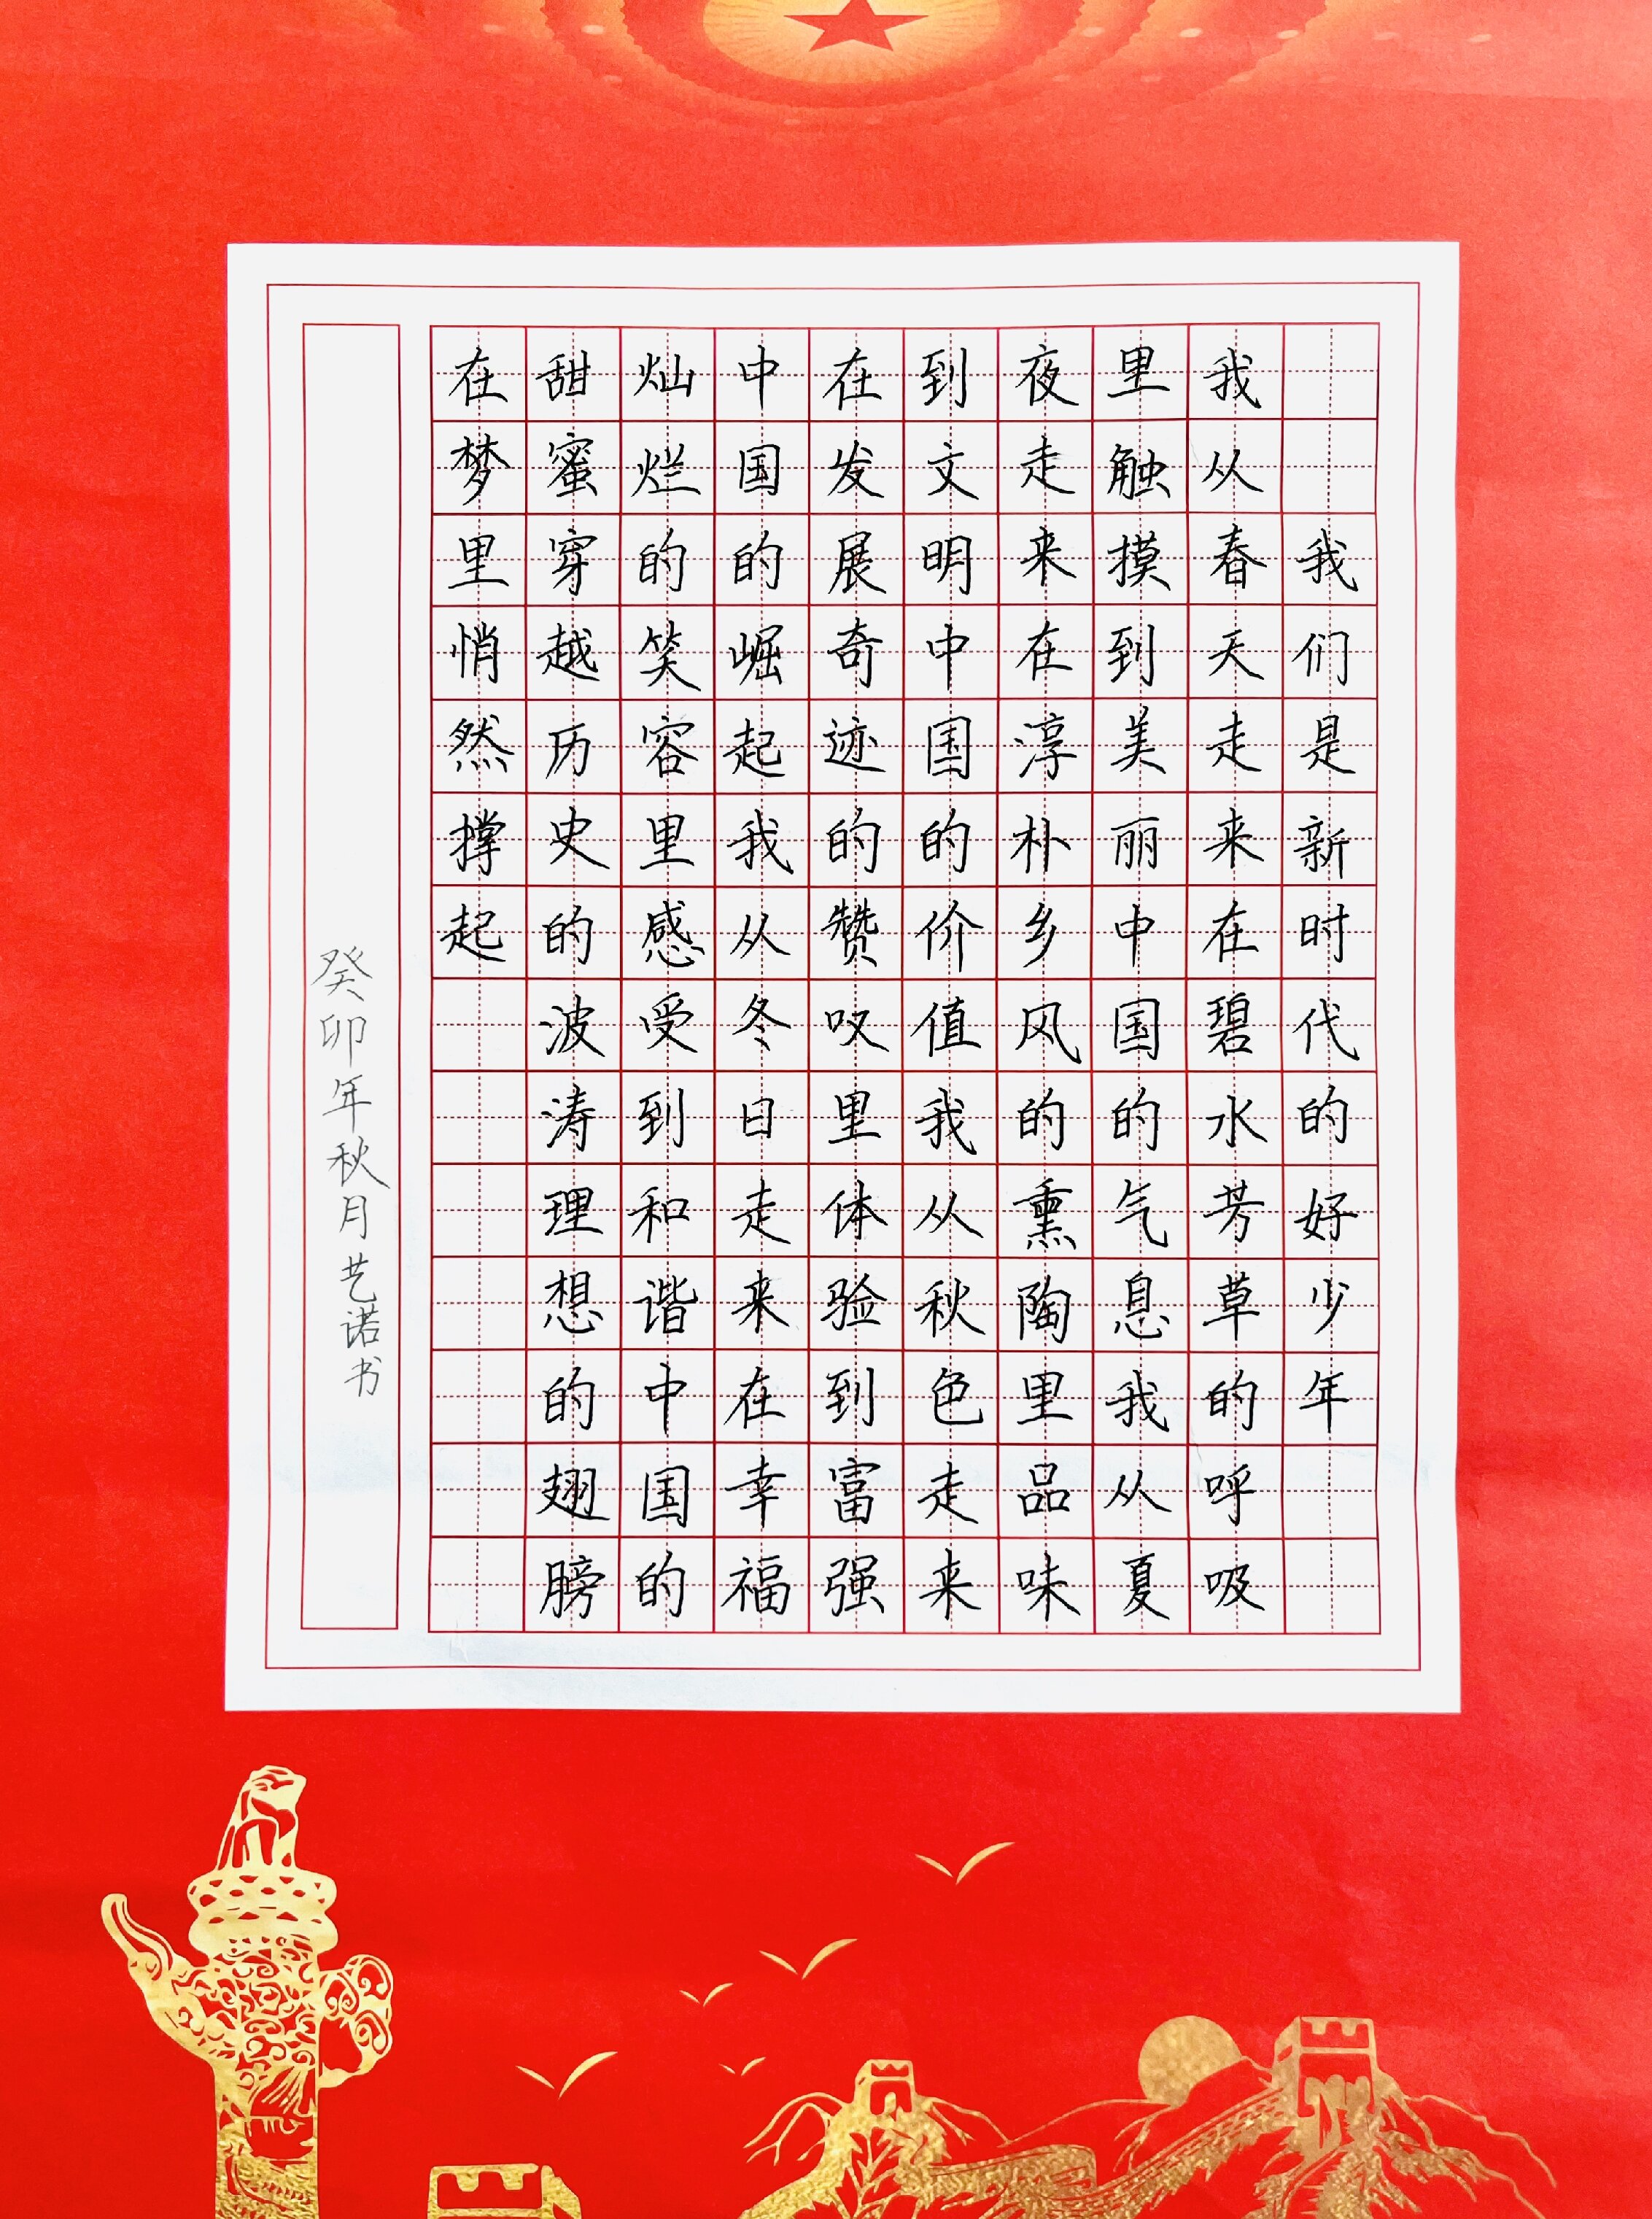 我们是新时代的好少年
我从春天走来在碧水芳草的呼吸
里触摸到美丽中国的气息我从夏
夜走来在淳朴乡风的熏陶里品味
到文明中国的价值我从秋色走来
在发展奇迹的赞叹里体验到富强
中国的崛起我从冬日走来在幸福
灿烂的笑容里感受到和谐中国的
甜蜜穿越历史的波涛理想的翅膀
在梦里悄然撑起
癸卯年秋月艺诺书